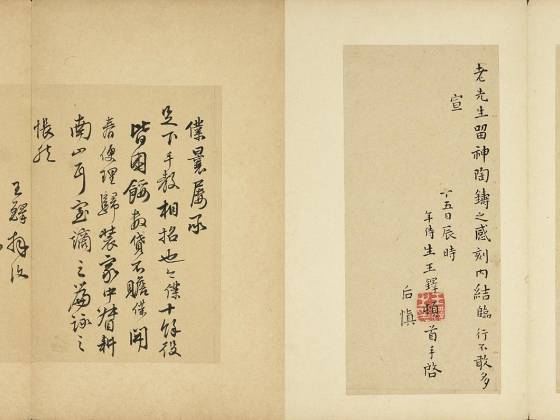 老先生留神陶鑄之感刻內結臨行不敢多
宣
十五日辰時
年侍生王鐸頓首手啓
后慎
僕曩屢承
足下手教相招也今僕十餘役
皆困餒數貸不贍僕開
春便理歸裝家中督耕
南山可
之篇詠之
悵然
王鐸拜